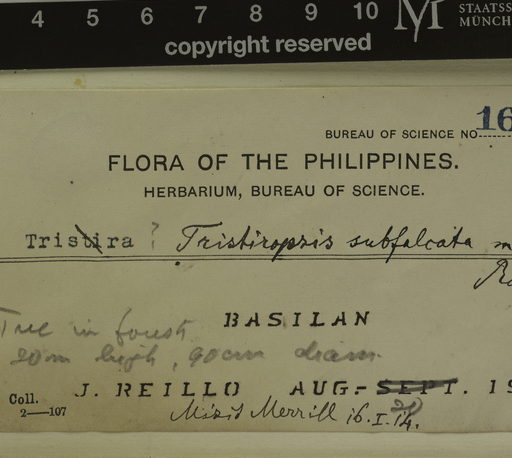 4 5 6 7 8 9 10
STAATSS
MÜNCH
copyright reserved
BUREAU OF SCIENCE NO 16
FLORA OF THE PHILIPPINES.
HERBARIUM, BUREAU OF SCIENCE.
Tristira ? Tristiropsis subfalcata m
Ra
Tree in forest BASILAN
20 m high, 90 cm diam.
Coll. J. REILLO AUG.-SEPT. 19
2—107
Misit Merrill 16.I.14.